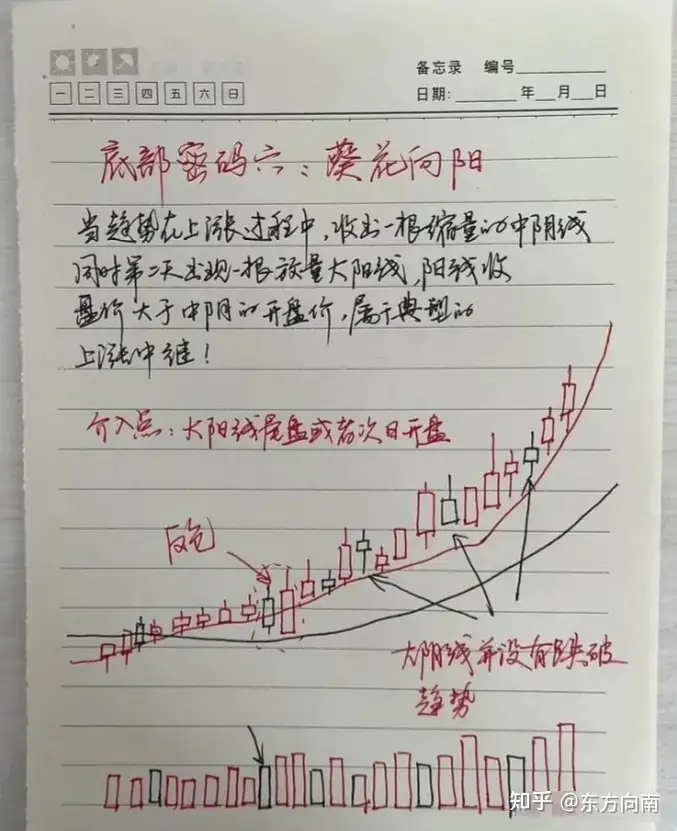 备忘录 编号
一 二 三 四 五 六 日
日期: 年 月 日
底部密码六:葵花向阳
当趋势在上涨过程中,收出一根缩量的中阴线
同时第二天出现一根放量大阳线,阳线收
盘价大于中阴的开盘价,属于典型的
上涨中继!
介入点:大阳线尾盘或者次日开盘
反包
大阴线并没有跌破
趋势
知乎 @东方向南